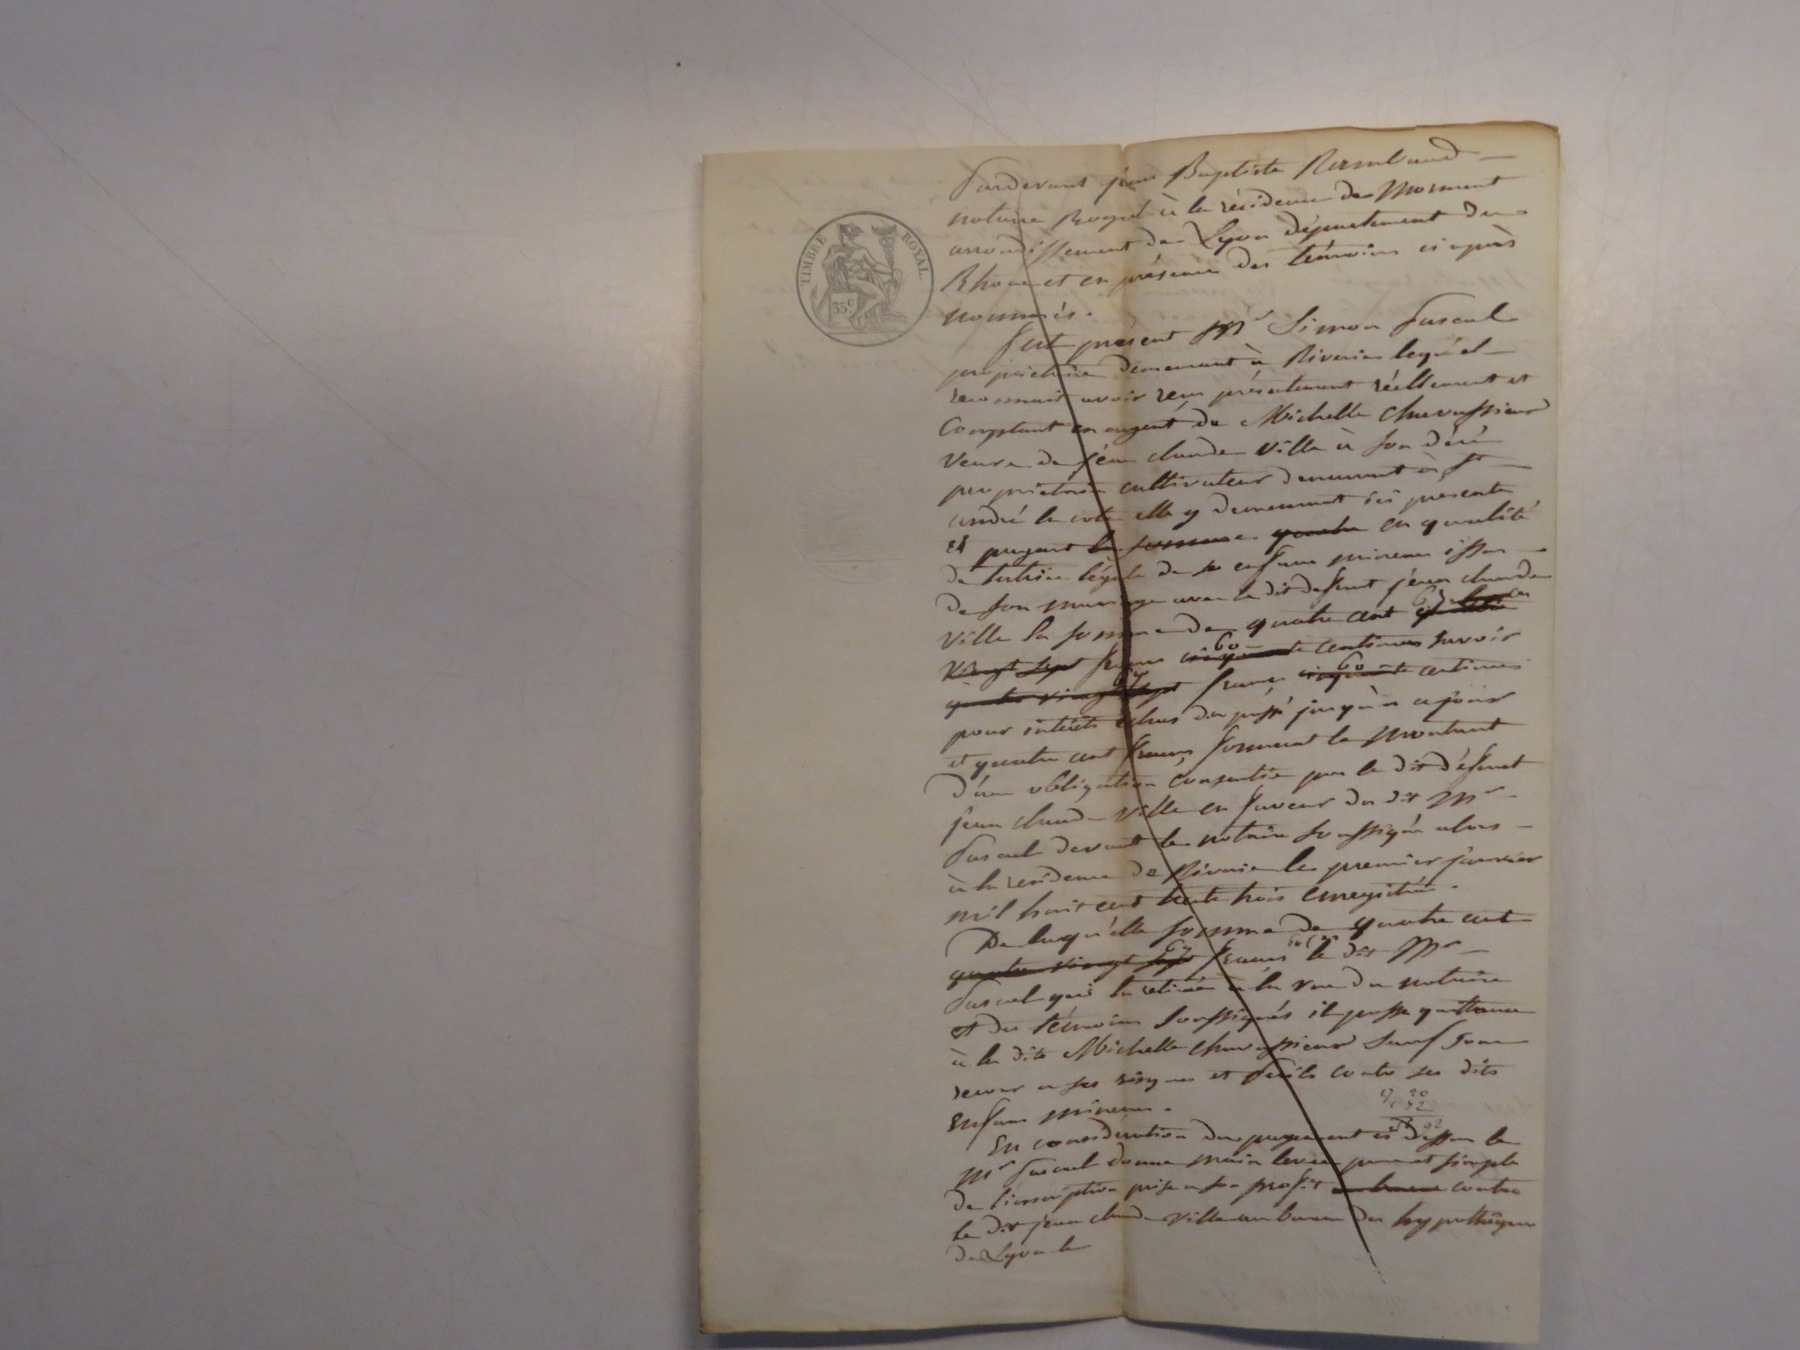 TIMBRE ROYAL
35 c
Pardevant jean Baptiste Rambaud
notaire Royal à la résidence de Mornant
arrondissement de Lyon département du
Rhone et en présence des témoins ci après
nommés.
fut présent Mr Simon Pascal
propriétaire demeurant à Riverie lequel
reconnait avoir reçu présentement réellement et
comptant en argent de Michelle Chavassieux
veuve de jean claude Ville à son décé
propriétaire cultivateur demeurant à St
andré la cote elle y demeurant ici présente
et payant la somme quatre en qualité
de tutrice légale de ses enfans mineurs issu
de son mariage avec le dit defunt jean claude
Ville la somme de quatre cent
vingt sept francs 60 cinquante centimes savoir
quatre vingt sept francs 60 cinquante centimes
pour intérêts échus du passé jusqu'à ce jour
et quatre cent francs formant le montant
d'une obligation consentie par le dit défunt
jean claude Ville en faveur du dit Mr
Pascal devant le notaire soussigné alors
à la residence de Riverie le premier janvier
mil huit cent trente trois enregistrée.
De laquelle somme de quatre cent
quatre vingt sept 67 francs 60 ces le dit Mr
Pascal qui la retirée à la vue du notaire
et des témoins soussignés il passe quittance
à la dite Michelle Chavassieux sauf son
recour a ses risques et périls contre ses dits
enfans mineurs.
20
92
En considération du payement ci dessu le
Mr Pascal donne main levée pure et simple
de l'inscription prise a son profit au bureau contre
le dit jean claude Ville au bureau des hypothèques
de Lyon le